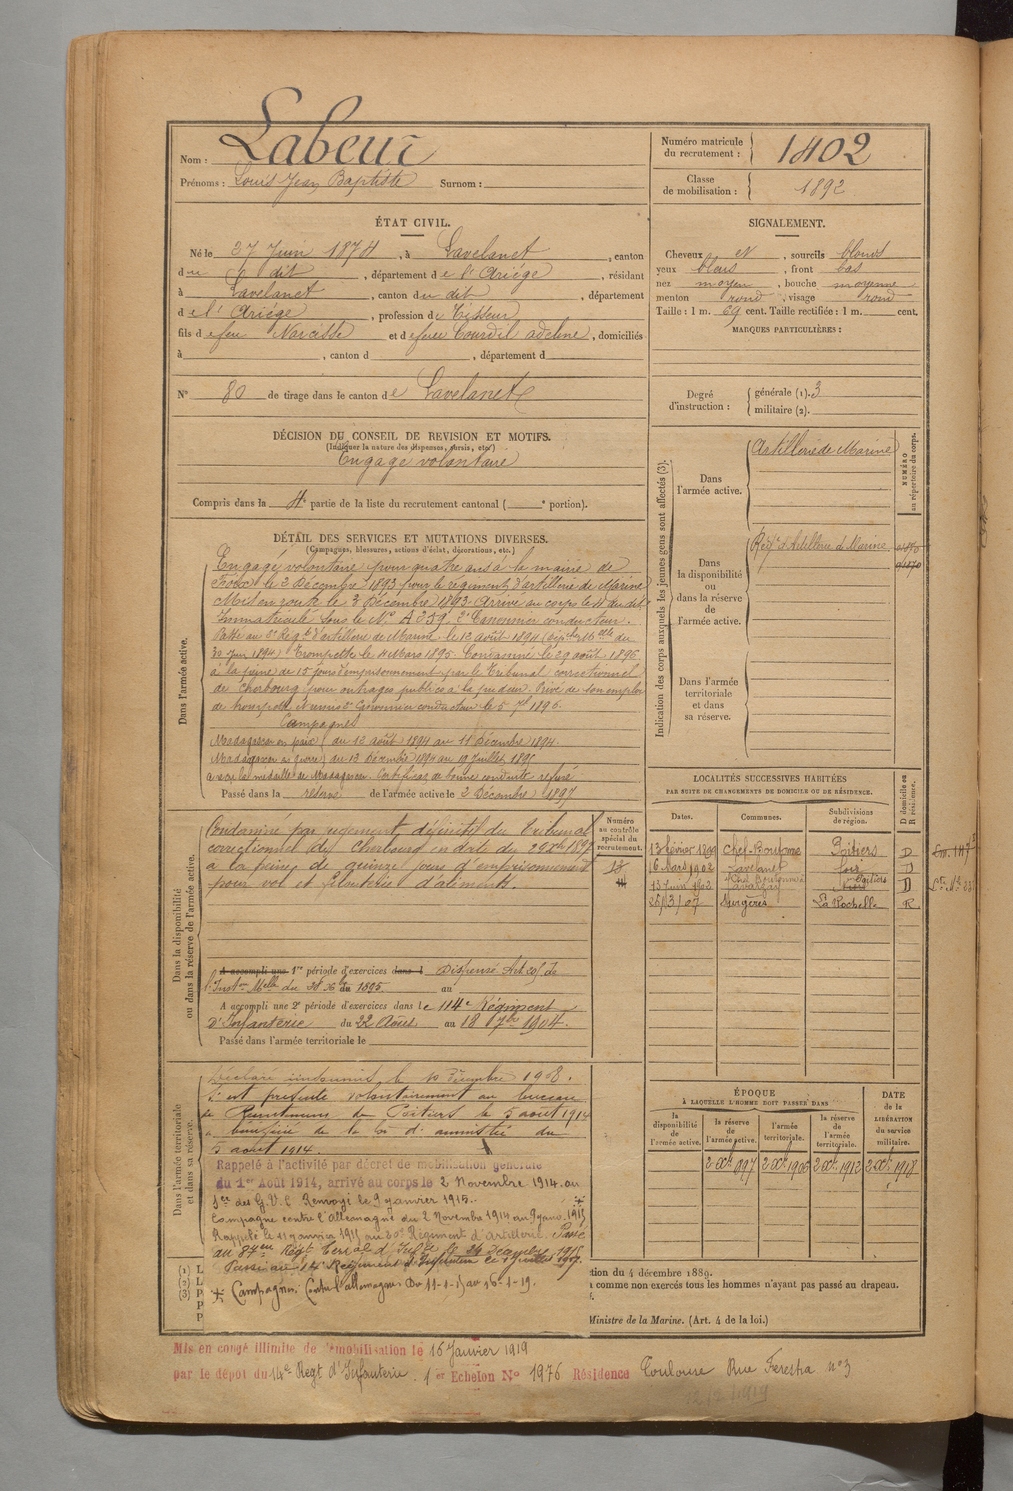 Nom : Labeur
Prénoms : Louis Jean Baptiste Surnom :
Numéro matricule du recrutement : 1402
Classe de mobilisation : 1892
ÉTAT CIVIL.
Né le 27 Juin 1874, à Lavelanet, canton
du dit, département de l'Ariége, résidant
à Lavelanet, canton du dit, département
de l'Ariége, profession de Tisseur
fils de feu Narcisse et de feue Courdil adeline, domiciliés
à , canton d , département d
N° 80 de tirage dans le canton de Lavelanet
SIGNALEMENT.
Cheveux et, sourcils blonds
yeux bleus, front bas
nez moyen, bouche moyenne
menton rond, visage rond
Taille : 1 m. 69 cent. Taille rectifiée : 1 m. cent.
MARQUES PARTICULIÈRES :
Degré d'instruction : générale (1). 3
militaire (2).
DÉCISION DU CONSEIL DE REVISION ET MOTIFS.
(Indiquer la nature des dispenses, sursis, etc.)
Engagé volontaire
Compris dans la 4e partie de la liste du recrutement cantonal ( e portion).
DÉTAIL DES SERVICES ET MUTATIONS DIVERSES.
(Campagnes, blessures, actions d'éclat, décorations, etc.)
Dans l'armée active.
Engagé volontaire pour quatre ans à la mairie de
Foix le 2 Décembre 1893 pour le régiment d'artillerie de Marine
Mis en route le 3 Décembre 1893. Arrivé au corps le 4 du dit
Immatriculé sous le N° A 359. 2e Canonnier conducteur.
Passé au 2e Régt d'artillerie de Marine le 12 août 1894
30 Juin 1894) Trompette le 4 Mars 1895. Condamné le 29 août 1896
à la peine de 15 jours d'emprisonnement par le Tribunal correctionnel
de Cherbourg pour outrages publics à la pudeur. Privé de son emploi
de trompette Nommé 2e Canonnier conducteur le 5 7bre 1896.
Campagnes
Madagascar en paix du 12 août 1894 au 11 Décembre 1894.
Madagascar en guerre du 12 Décembre 1894 au 19 Juillet 1895
a reçu la médaille de Madagascar. Certificat de bonne conduite refusé
Passé dans la réserve de l'armée active le 2 Décembre 1897
Indication des corps auxquels les jeunes gens sont affectés (3).
Dans l'armée active.
Artillerie de Marine
NUMÉRO au répertoire du corps.
Dans la disponibilité ou dans la réserve de l'armée active.
Régt d'Artillerie de Marine
Dans l'armée territoriale et dans sa réserve.
Dans la disponibilité ou dans la réserve de l'armée active.
Condamné par jugement définitif du Tribunal
correctionnel de Cherbourg en date du
à la peine de quinze jours d'emprisonnement
pour vol et filouterie d'aliments.
Numéro au contrôle spécial du recrutement.
A accompli une 1re période d'exercices dans l Dispensé Art 20 de
l'Inston Melle du 28 Xbre 1895 au
A accompli une 2e période d'exercices dans le 114e Régiment
d'Infanterie du 22 Août au 18 7bre 1904.
Passé dans l'armée territoriale le
LOCALITÉS SUCCESSIVES HABITÉES
PAR SUITE DE CHANGEMENTS DE DOMICILE OU DE RÉSIDENCE.
Dates. Communes. Subdivisions de région. D domicile ou R résidence.
13 février 1899 Chef-Boutonne Poitiers D
16 Mars 1902 Lavelanet foix D
13 Juin 1902 Chef Boutonne Poitiers D
26/3/07 Surgères La Rochelle R
Dans l'armée territoriale et dans sa réserve.
Déclaré insoumis le 10 Décembre 1908.
S'est présenté volontairement au bureau
de Recrutement de Poitiers le 5 août 1914
a bénéficié de la loi d'amnistie du
5 août 1914.
Rappelé à l'activité par décret de mobilisation générale
du 1er Août 1914, arrivé au corps le 2 Novembre 1914 au
son des G.V.C Renvoyé le 9 janvier 1915.
Campagne contre l'Allemagne du 2 Novembre 1914 au 9 janv. 1915
Rappelé le 11 janvier 1915 au 20e Régiment d'Artillerie. Passé
au 87eme Régt Terral d'Infie le 24 Décembre 1915
Passé au 14e Régiment d'Infanterie le
Campagne Contre l'allemagne Du 11-1-15 au 16-1-19.
ÉPOQUE
À LAQUELLE L'HOMME DOIT PASSER DANS
la disponibilité de l'armée active. la réserve de l'armée active. l'armée territoriale. la réserve de l'armée territoriale.
DATE de la LIBÉRATION du service militaire.
2 Xbre 1897 2 Xbre 1906 2 Xbre 1912 2 Xbre 1918
(1)
(2)
(3)
tion du 4 décembre 1889.
comme non exercés tous les hommes n'ayant pas passé au drapeau.
Ministre de la Marine. (Art. 4 de la loi.)
Mis en congé illimité de démobilisation le 16 Janvier 1919
par le dépôt du 14e Régt d'Infanterie. 1er Echelon N° 1976 Résidence Toulouse Rue n° 3